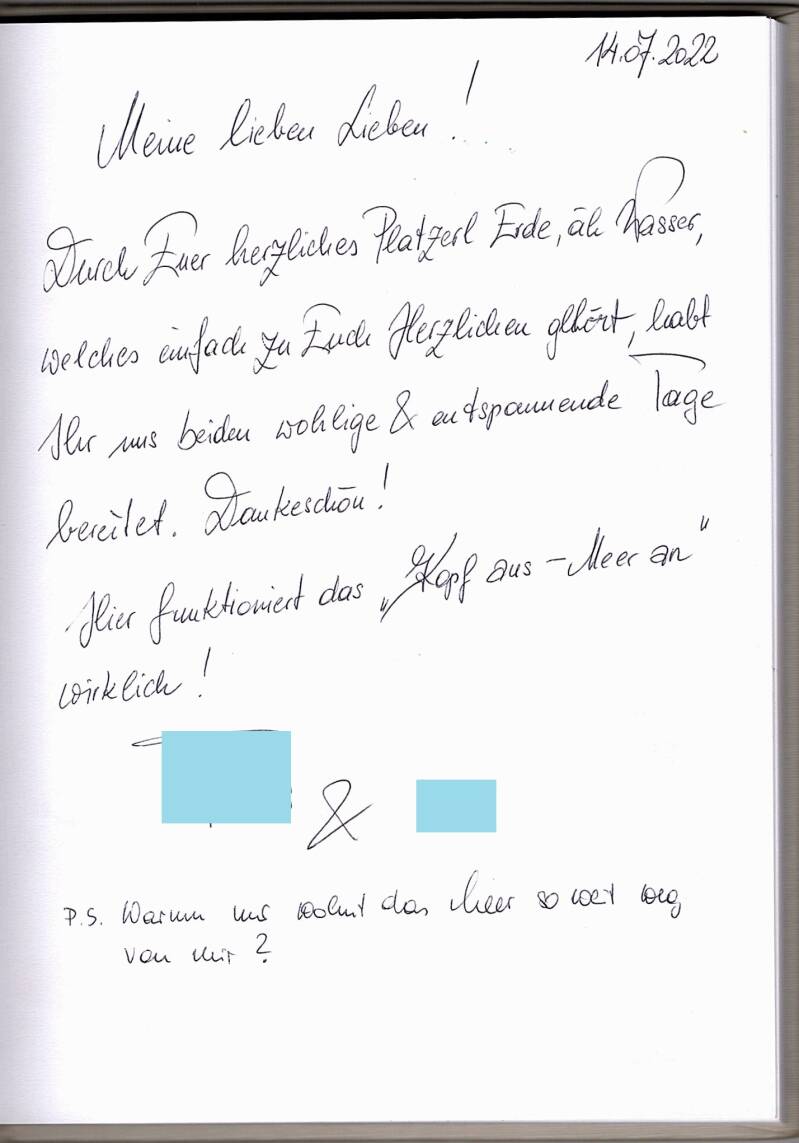 14.07.2022
Meine lieben Lieben!...
Durch Euer herzliches Platzerl Erde, äh Wasser,
welches einfach zu Euch Herzlichen gehört, habt
Ihr uns beiden wohlige & entspannende Tage
bereitet. Dankeschön!
Hier funktioniert das „Kopf aus - Meer an"
wirklich!
&
P.S. Warum nur wohnt das Meer so weit weg
von mir?